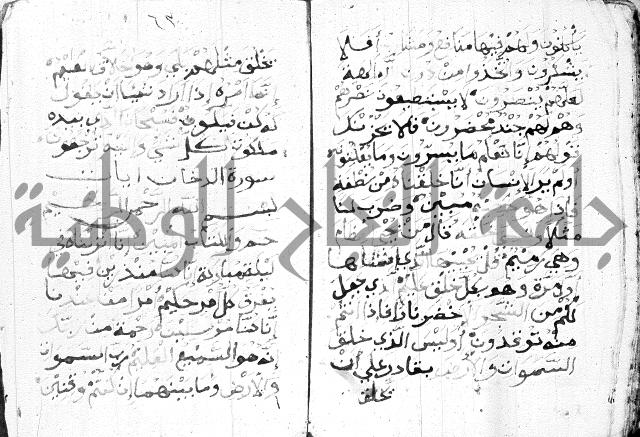 يأكلون ولهم فيها منافع ومشارب أفلا
يشكرون واتخذوا من دون الله آلهة
لعلهم ينصرون لا يستطيعون نصرهم
وهم لهم جند محضرون فلا يحزنك
قولهم إنا نعلم ما يسرون وما يعلنون
أولم ير الإنسان أنا خلقناه من نطفة
فإذا هو خصيم مبين وضرب لنا
مثلا ونسي خلقه قال من يحي العظام
وهي رميم قل يحييها الذي أنشأها
أول مرة وهو بكل خلق عليم الذي جعل
لكم من الشجر الأخضر نارا فإذا أنتم
منه توقدون أوليس الذي خلق
السموات والأرض بقادر على أن
يخلق
٦٢
يخلق مثلهم بلى وهو الخلاق العليم
إنما أمره إذا أراد شيئا أن يقول
له كن فيكون فسبحان الذي بيده
ملكوت كل شيء وإليه ترجعون
سورة الدخان
بسم الله الرحمن الرحيم
حم والكتاب المبين إنا أنزلناه في
ليلة مباركة إنا كنا منذرين فيها
يفرق كل أمر حكيم أمرا من عندنا
إنا كنا مرسلين رحمة من ربك
إنه هو السميع العليم رب السموات
والأرض وما بينهما إن كنتم موقنين
جامعة النجاح الوطنية